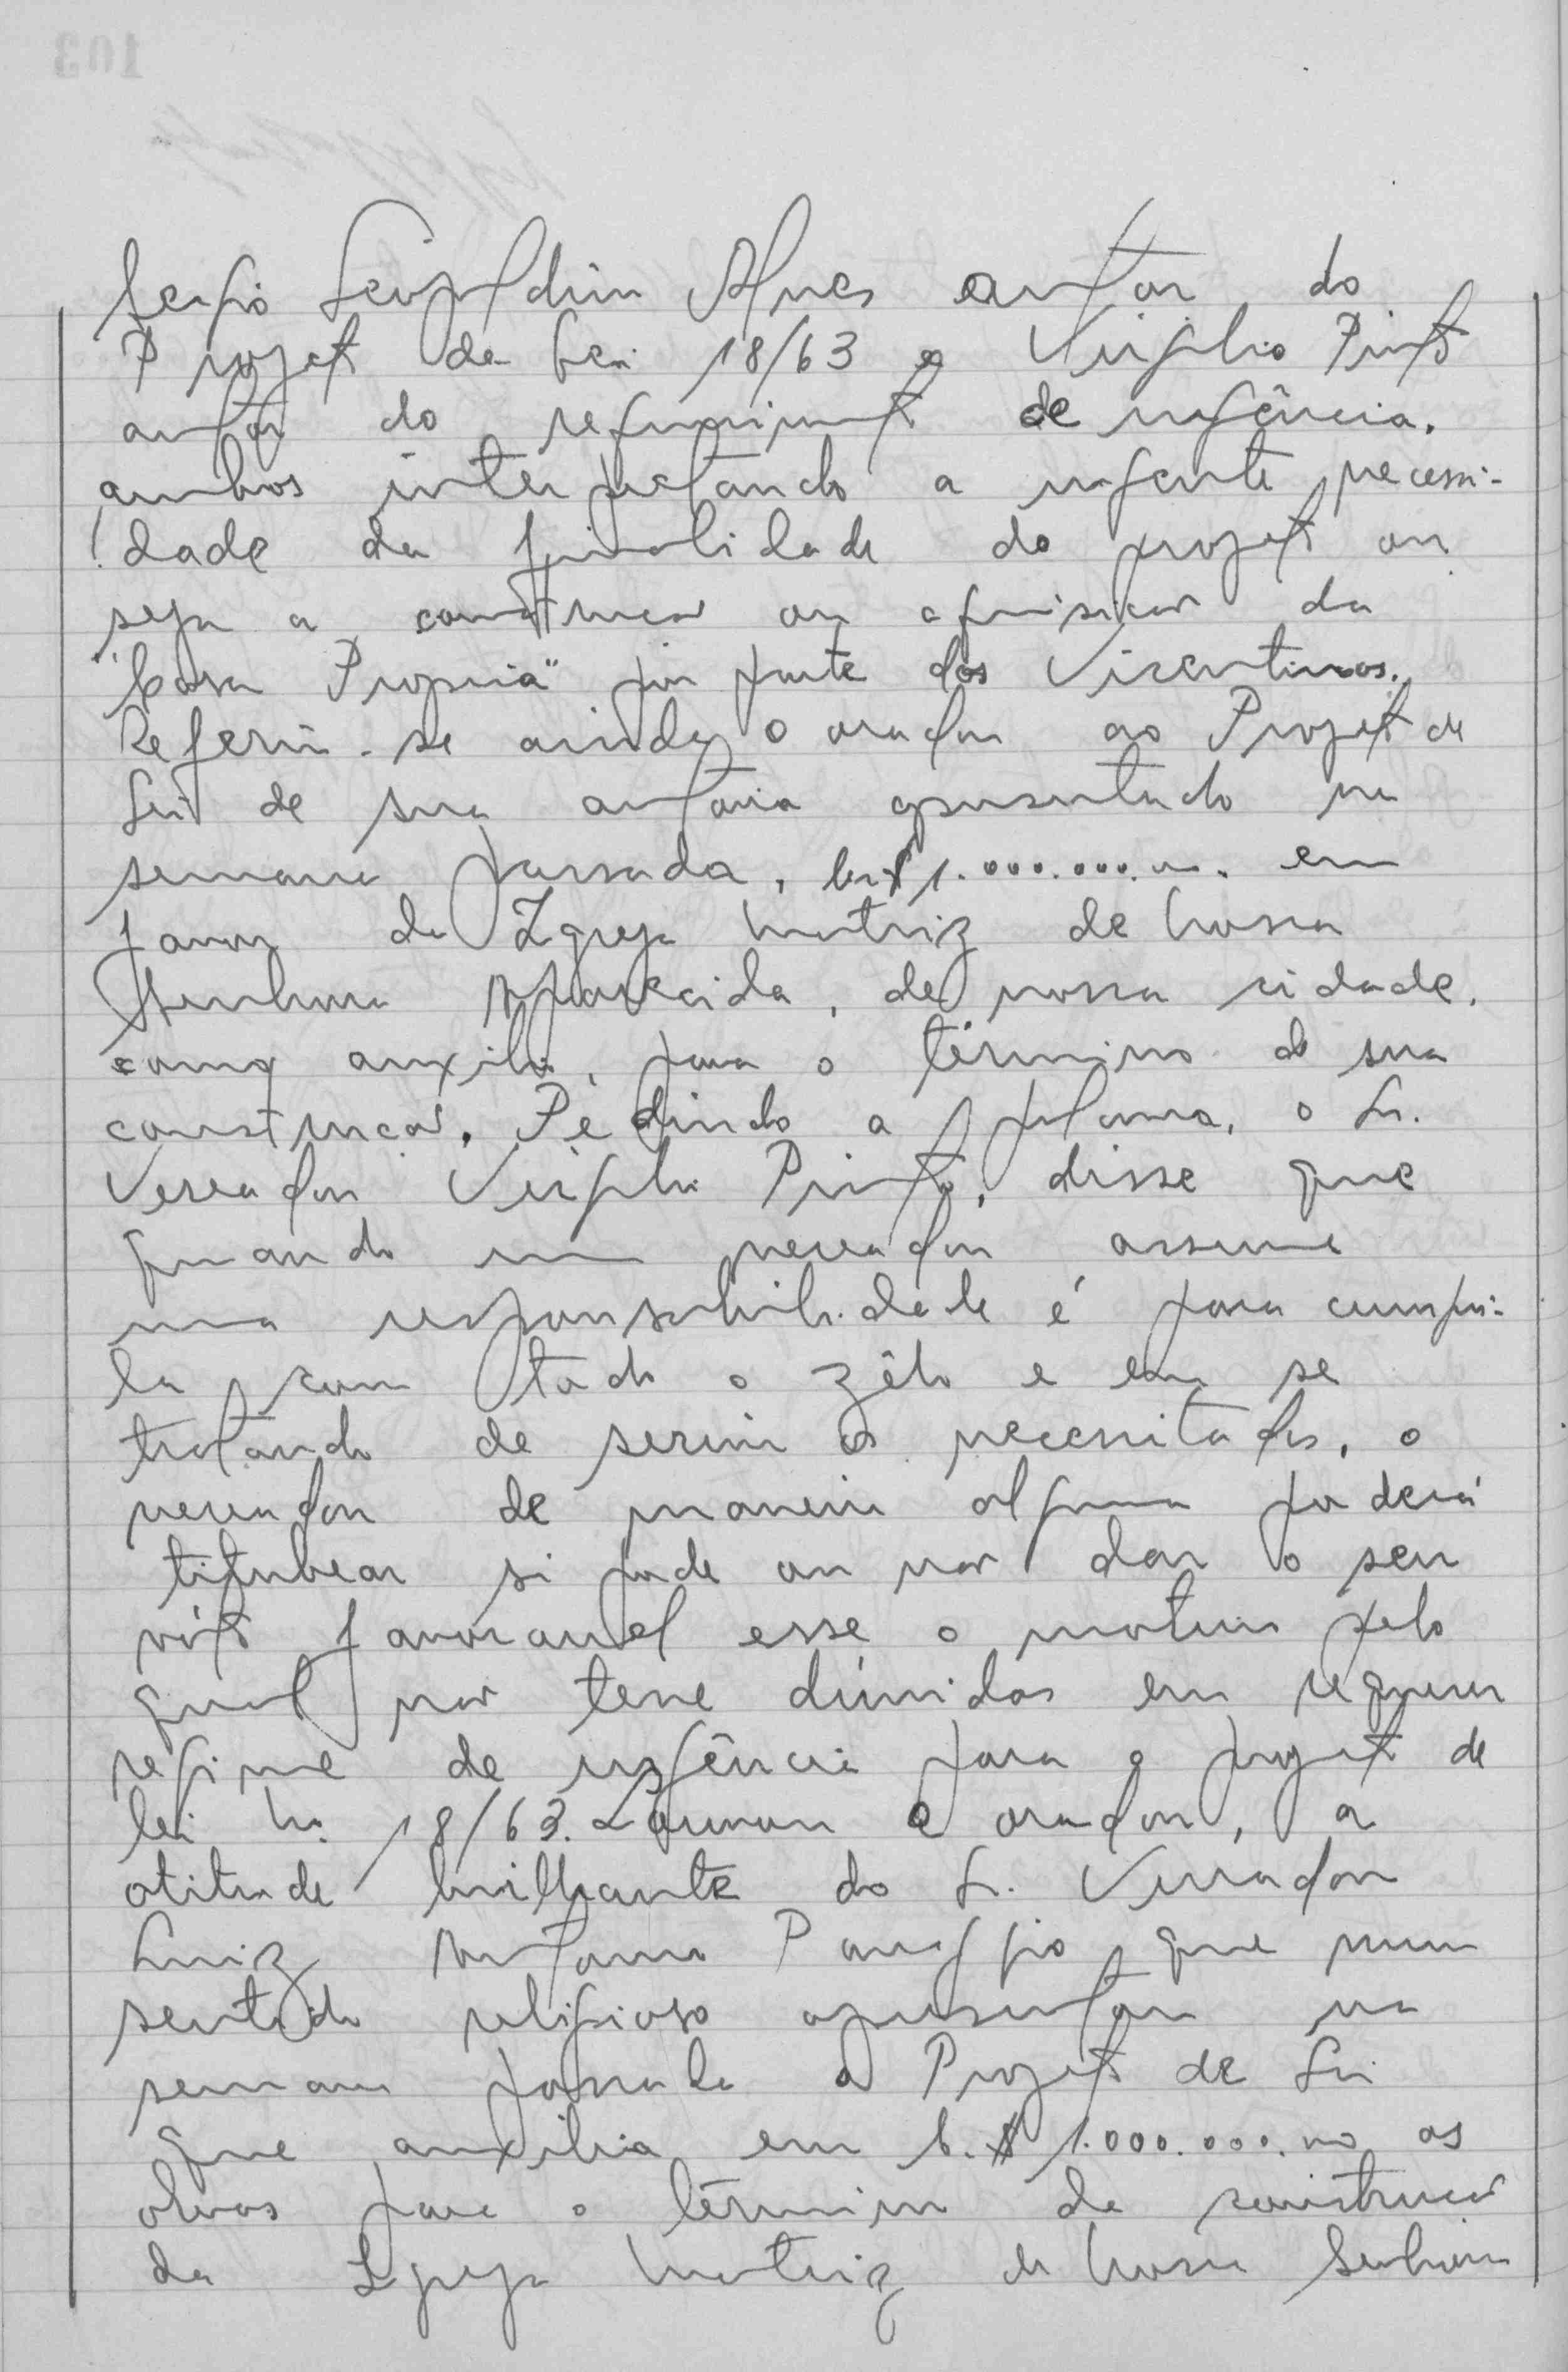 Sergio Leopoldino Alves autor do
Projeto de Lei 18/63 e Virgilio Pinto
autor do requerimento de urgência.
ambos interpretando a urgente necessi-
dade da finalidade do projeto ou
seja a construção ou aquisição da
"Casa Propria" por parte dos Vicentinos.
Referiu-se ainda o orador ao Projeto de
Lei de sua autoria apresentado na
semana passada, Cr$ 1.000.000,00. em
favor da Igreja Matriz de Nossa
Senhora Aparecida, de nossa cidade,
como auxilio, para o término de sua
construção. Pedindo a palavra, o Sr.
Vereador Virgilio Pinto, disse que
quando um vereador assume
uma responsabilidade é para cumpri-
la com todo o zêlo e em se
tratando de servir os necessitados, o
vereador de maneira alguma poderá
titubear si pode ou não dar o seu
vóto favoravel esse o motivo pelo
qual não teve dúvidas em requerer
regime de urgência para o projeto de
lei No. 18/63. Louvou o orador, a
atitude brilhante do Sr. Vereador
Luiz Antonio que num
sentido religioso apresentou na
semana passada o Projeto de Lei
que auxilia em C.$ 1.000.000,00 as
obras para o término da construção
da Igreja Matriz de Nossa Senhora